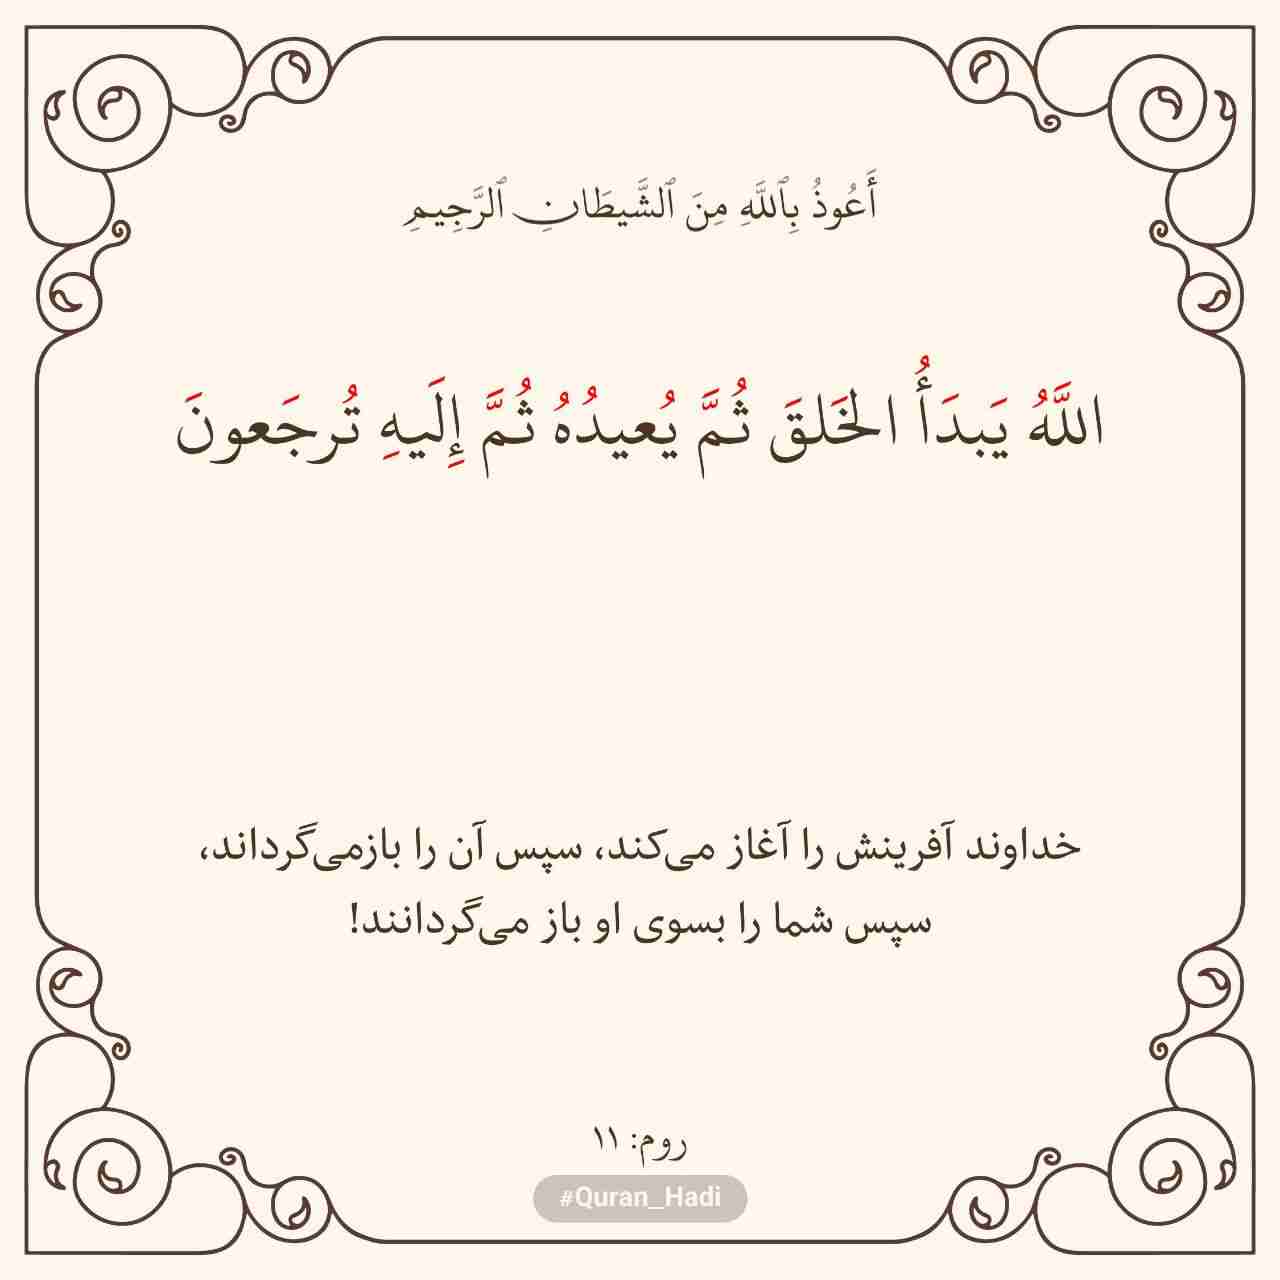 أَعُوذُ بِٱللَّهِ مِنَ ٱلشَّيطَانِ ٱلرَّجِيمِ
اللَّهُ يَبدَأُ الخَلقَ ثُمَّ يُعيدُهُ ثُمَّ إِلَيهِ تُرجَعونَ
خداوند آفرینش را آغاز می‌کند، سپس آن را بازمی‌گرداند،
سپس شما را بسوی او باز می‌گردانند!
روم: ۱۱
#Quran_Hadi